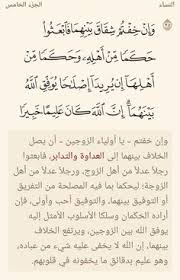 النساء
الجزء الخامس
وَإِنْ خِفْتُمْ شِقَاقَ بَيْنِهِمَا فَابْعَثُوا
حَكَمًا مِنْ أَهْلِهِ وَحَكَمًا مِنْ
أَهْلِهَا إِنْ يُرِيدَا إِصْلَاحًا يُوَفِّقِ اللَّهُ
بَيْنَهُمَا إِنَّ اللَّهَ كَانَ عَلِيمًا خَبِيرًا
وإن خفتم - يا أولياء الزوجين - أن يصل
الخلاف بينهما إلى العداوة والتدابر، فابعثوا
رجلًا عدلًا من أهل الزوج، ورجلًا عدلًا من أهل
الزوجة؛ ليحكما بما فيه المصلحة من التفريق
أو التوفيق بينهما، والتوفيق أحب، وأولى، فإن
أراده الحكمان وسلكا الأسلوب الأمثل إليه
يوفق الله بين الزوجين، ويرتفع الخلاف
بينهما، إن الله لا يخفى عليه شيء من عباده،
وهو عليم بدقائق ما يخفونه في قلوبهم.